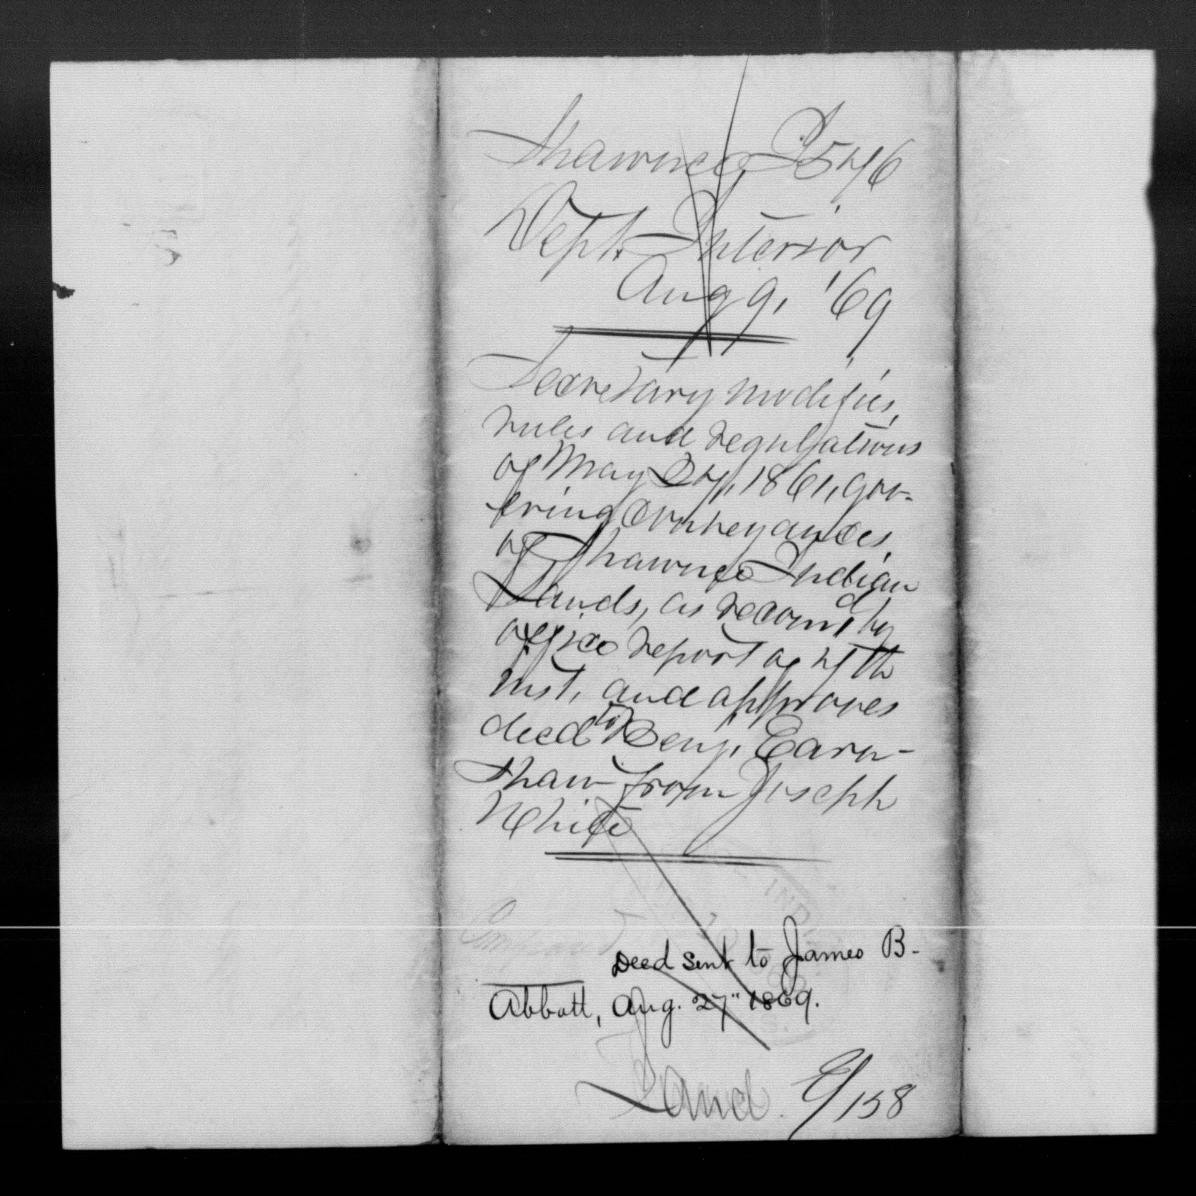 Shawnee I 576
Dept. Interior
Aug 9, '69
Secretary modifies
rules and regulations
of May 27, 1861, gov-
erning conveyances
of Shawnee Indian
Lands, as recomd by
office report of 7th
inst, and approves
deed to Benj. Earn-
shaw from Joseph
White
Deed sent to James B.
Abbott, Aug. 27" 1869.
Land. 9/158